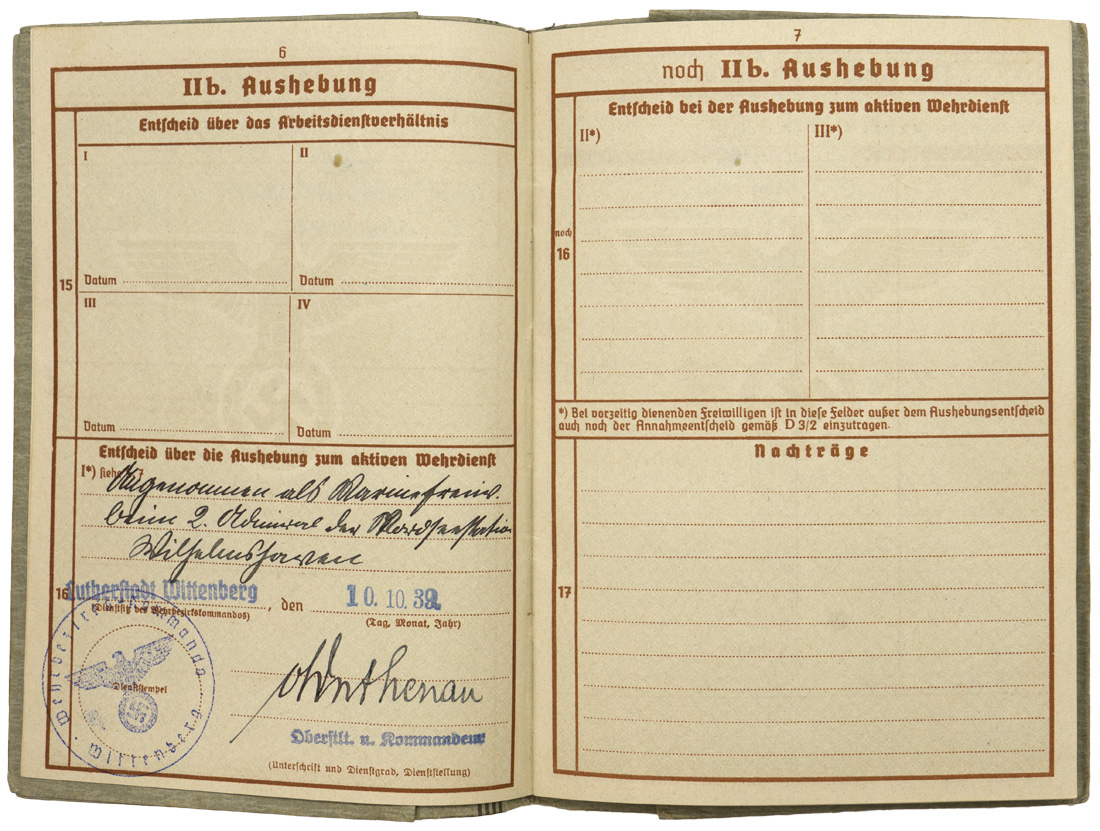 6
IIb. Aushebung
15
Entscheid über das Arbeitsdienstverhältnis
I
II
Datum
Datum
III
IV
Datum
Datum
16
Entscheid über die Aushebung zum aktiven Wehrdienst
I*) siehe
Angenommen als Marinefreiw.
beim 2. Admiral der Nordseestation
Wilhelmshaven
Lutherstadt Wittenberg, den 10. 10. 39.
(Dienstsitz des Wehrbezirkskommandos)
(Tag, Monat, Jahr)
Wehrbezirkskommando
Wittenberg
Dienststempel
Oberstlt. u. Kommandeur
(Unterschrift und Dienstgrad, Dienststellung)
7
noch IIb. Aushebung
noch
16
Entscheid bei der Aushebung zum aktiven Wehrdienst
II*)
III*)
*) Bei vorzeitig dienenden Freiwilligen ist in diese Felder außer dem Aushebungsentscheid
auch noch der Annahmeentscheid gemäß D 3/2 einzutragen.
17
Nachträge